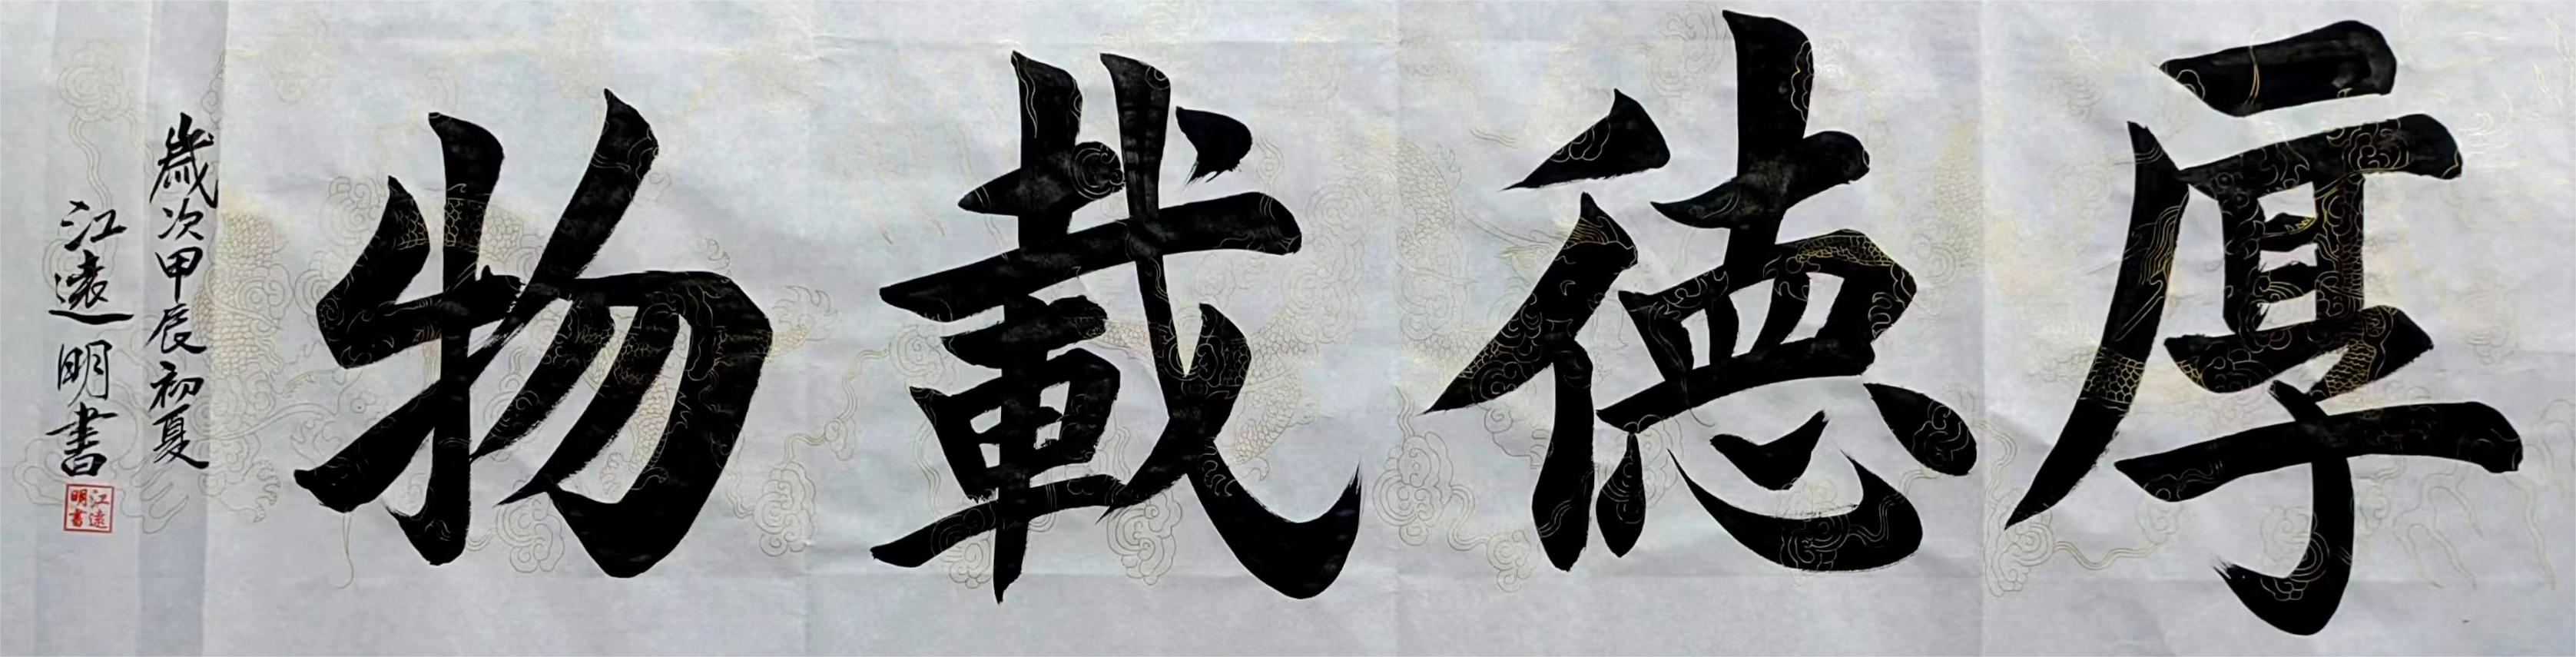 厚德載物
歲次甲辰初夏
江遠明書
江遠
明書